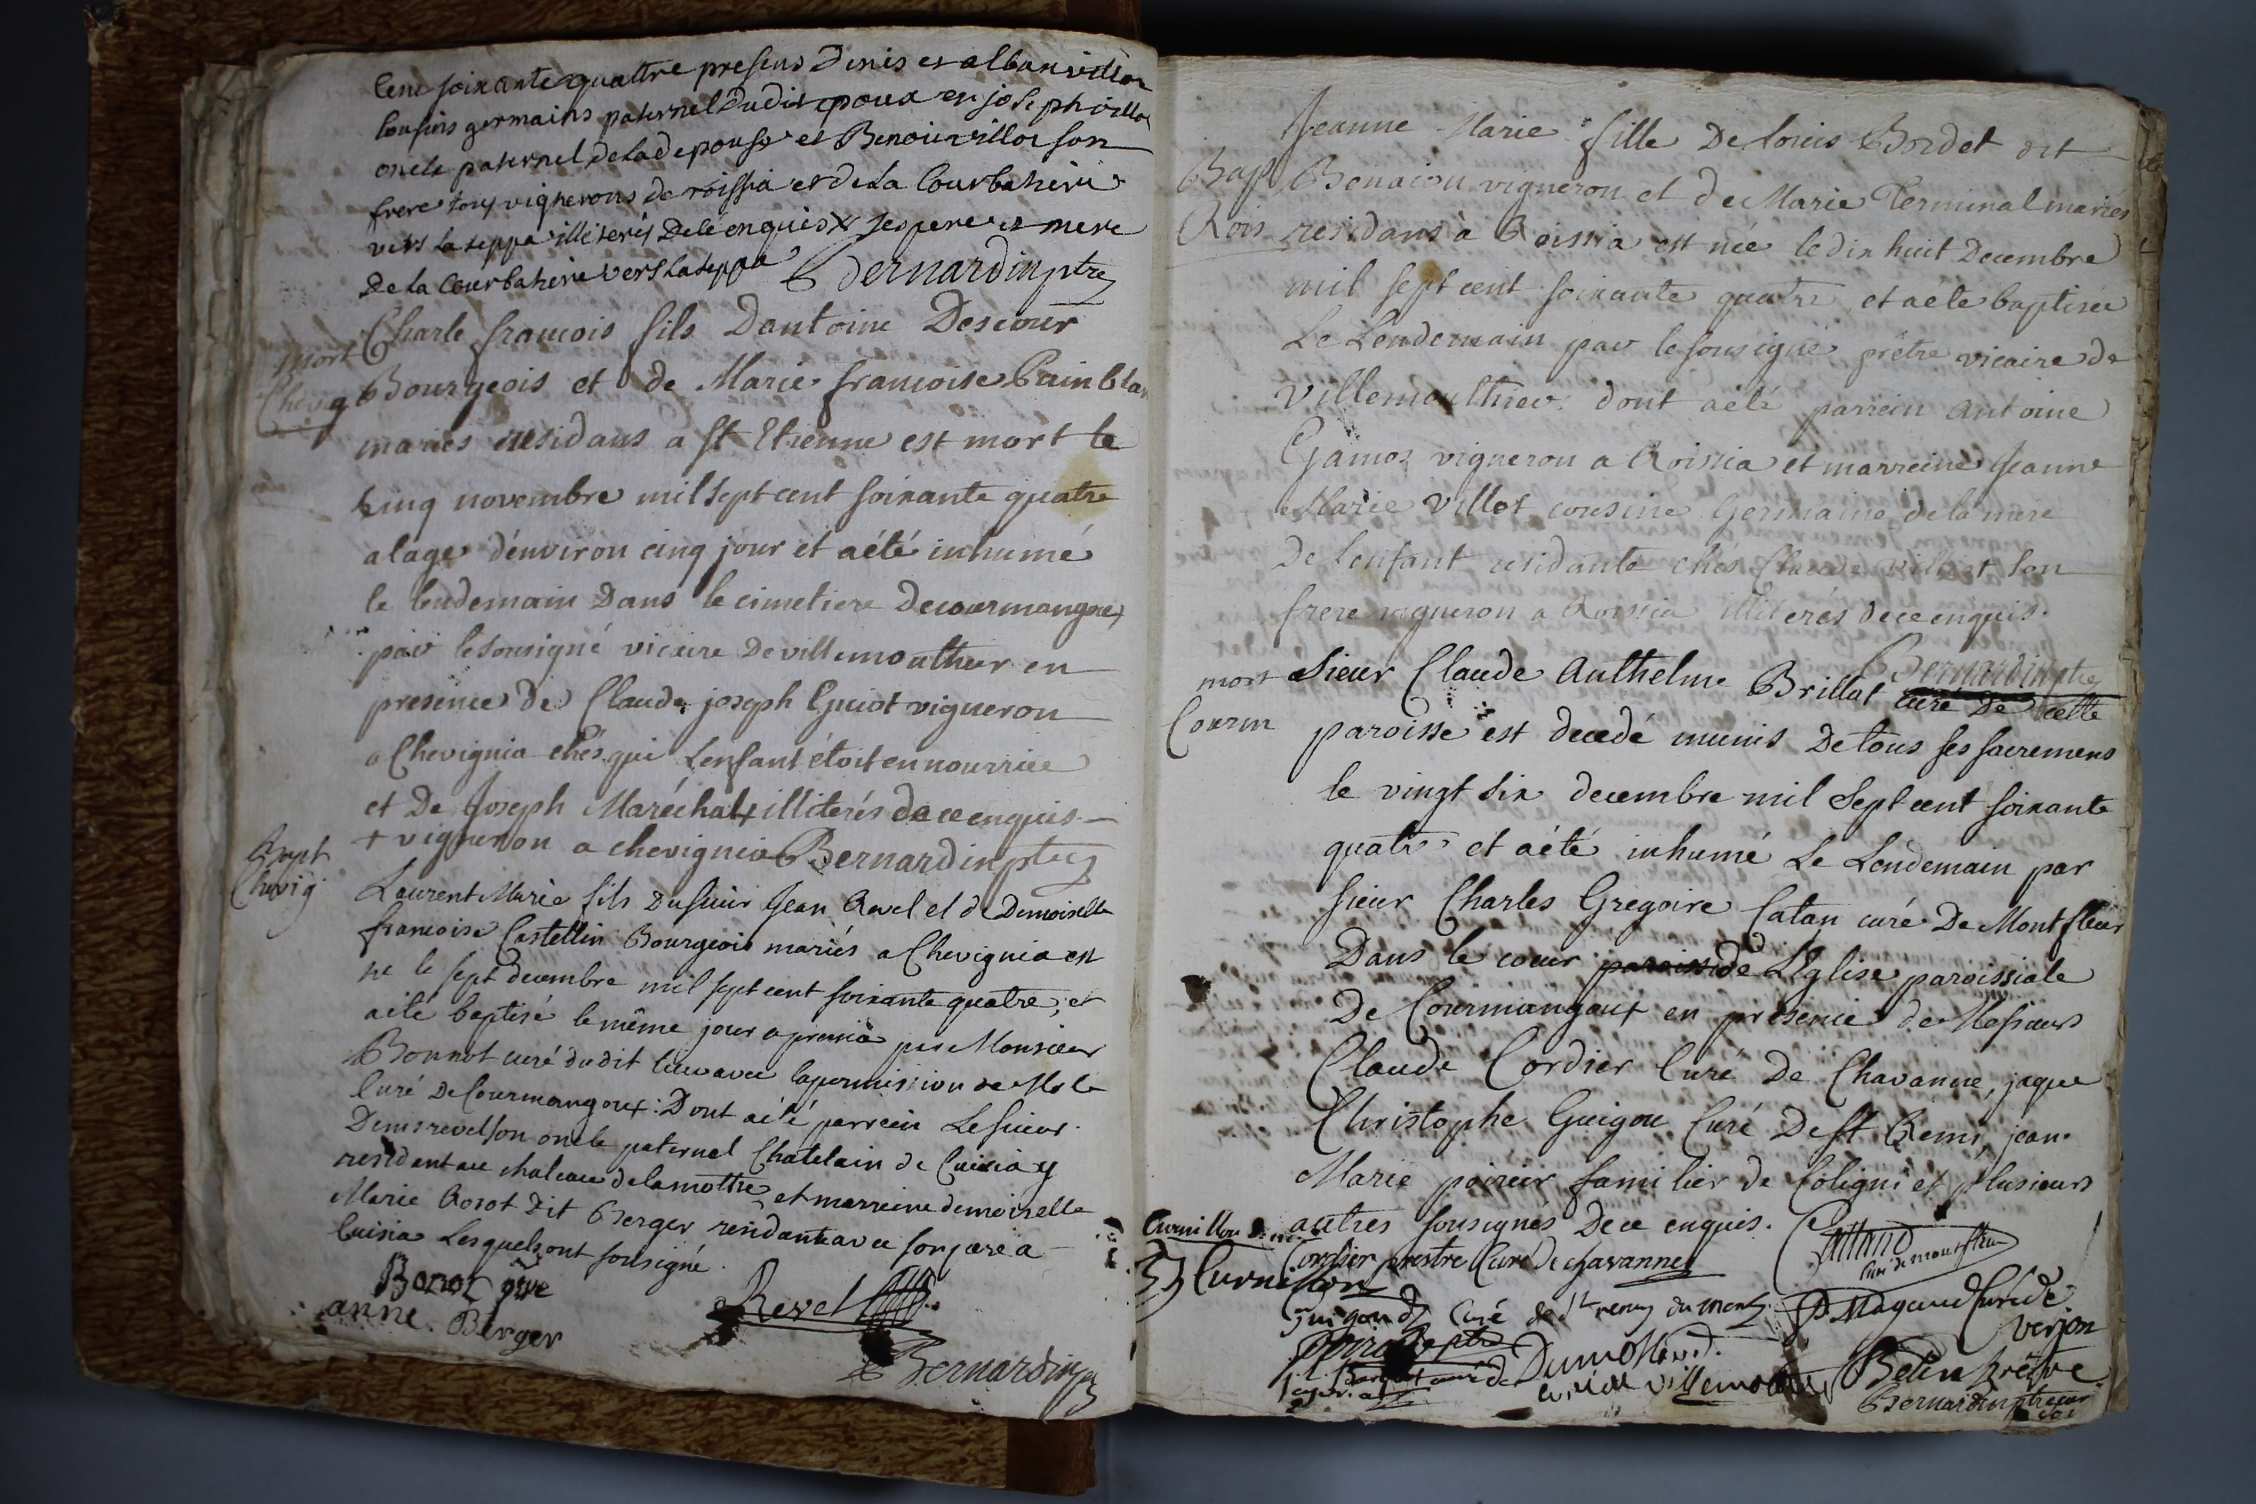 Cent soixante quattre presens Denis et alban villot
Cousins germains paternel dudit epoux et joseph villot
oncle paternel de lad epouse et Benoit villot son
frere tous vignerons de roissia et de la Courbatiere
vers la seppa illiterés De cé enquis x ses pere et mere
De la Courbatiere vers la seppa Bernardin ptre
mort
Chevig
Charle francois fils Dantoine Descour
Bourgeois et de Marie francoise Painbla
mariés residans a St Etienne est mort le
cinq novembre mil sept cent soixante quatre
a lage d'environ cinq jour et a été inhumé
le lendemain Dans le cimetiere de courmangoux
par le sousigné vicaire De villemouthier en
presence de Claude joseph Guiot vigneron
a Chevignia chés qui Lenfant étoit en nourrice
et De Joseph Maréchal + illiterés de ce enquis
+ vigneron a chevignia Bernardin ptre
Bapt
Chevig.
Laurent Marie fils Du sieur Jean Revel et de Demoiselle
francoise Castellin Bourgeois mariés a Chevignia est
né le sept decembre mil sept cent soixante quatre, et
a été baptisé le même jour a pressia par Monsieur
Bonnot curé dudit lieu avec la permission de Mr le
Curé De Courmangoux: Dont a été parrein Le sieur
Denis revel son oncle paternel Chatelain de Cuisia y
resident au chateau de la motthe et marreine demoiselle
Marie Rosot dit Berger residante avec son pere a
Cuisia Lesquels ont sousigné.
Bonot
anne Berger
Revel
Bernardin
Bap
Rois
Jeanne Marie fille De louis Bordet dit
Benaiou vigneron et de Marie Terminal mariés
residans à Roissia est née le dix huit Decembre
mil sept cent soixante quatre et a été baptisée
Le Lendemain par le sousigné prêtre vicaire de
Villemouthier: dont a été parrein Antoine
Gamos vigneron a Roissia et marreine Jeanne
Marie Villot cousine Germaine de la mere
De Lenfant residante chés Claude villot son
frere vigneron a Roissia illiterés de ce enquis.
Bernardin ptre
mort
Courm
Sieur Claude Anthelme Brillat curé De cette
paroisse est decedé munis De tous ses sacremens
le vingt six decembre mil sept cent soixante
quatre et a été inhumé Le Lendemain par
sieur Charles Gregoire Catan curé De Montfleur
Dans le coeur paroissi de L'Eglise paroissiale
De Courmangoux en présence de Messieurs
Claude Cordier Curé De Chavanne, jaque
Christophe Guigou Curé De St Remi, jean
Marie poirier familier de Coligni et plusieurs
autres sousignés De ce enquis.
Curnillon
Cordier prestre Curé de chavannes
Curé de montfleur
Curnillon
Guigoud Curé de St remy du mont
P. Magaud Curé de
verjon
Dumollard
curé de villemoutier
Belin prêtre
Bernardin ptre